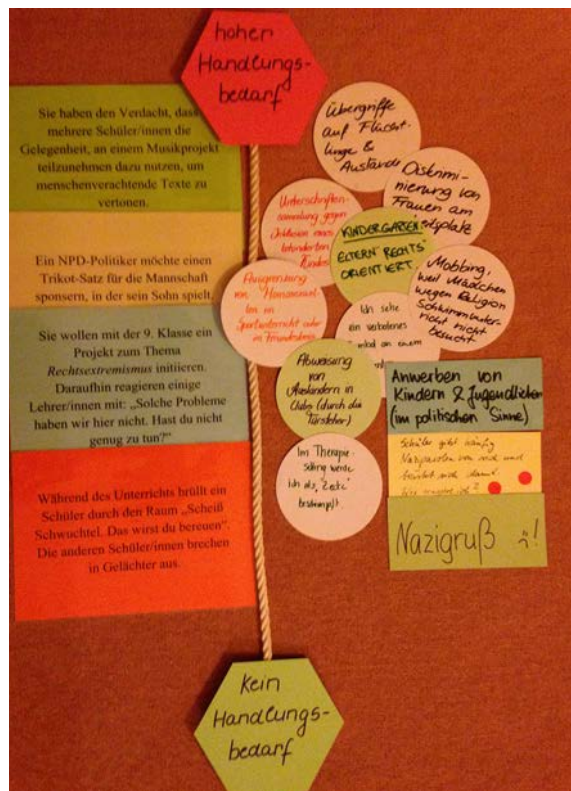 hoher
Handlungs-
bedarf
Sie haben den Verdacht, dass
mehrere Schüler/innen die
Gelegenheit, an einem Musikprojekt
teilzunehmen dazu nutzen, um
menschenverachtende Texte zu
vertonen.
Ein NPD-Politiker möchte einen
Trikot-Satz für die Mannschaft
sponsern, in der sein Sohn spielt.
Sie wollen mit der 9. Klasse ein
Projekt zum Thema
Rechtsextremismus initiieren.
Daraufhin reagieren einige
Lehrer/innen mit: „Solche Probleme
haben wir hier nicht. Hast du nicht
genug zu tun?"
Während des Unterrichts brüllt ein
Schüler durch den Raum „Scheiß
Schwuchtel. Das wirst du bereuen".
Die anderen Schüler/innen brechen
in Gelächter aus.
Übergriffe
auf Flücht-
linge &
Auslände
Diskrimi-
nierung von
Frauen am
Unterschriften-
sammlung gegen
Inklusion eines
behinderten
Kindes
KINDERGARTEN
ELTERN RECHTS
ORIENTIERT
Mobbing,
weil Mädchen
wegen Religion
Schwimmunter-
richt nicht
besucht
Ausgrenzung
von
im
Sportunterricht oder
im
Ich sehe
ein verbotenes
an einem
Abweisung
von
Ausländern in
Clubs (durch die
Türsteher)
Im Therapie-
setting werde
ich als „Zecke"
beschimpft
Anwerben von
Kindern & Jugendlichen
(im politischen Sinne)
Schüler gibt häufig
Naziparolen von sich und
brüstet sich damit.
Nazigruß !
Kein
Handlungs-
bedarf